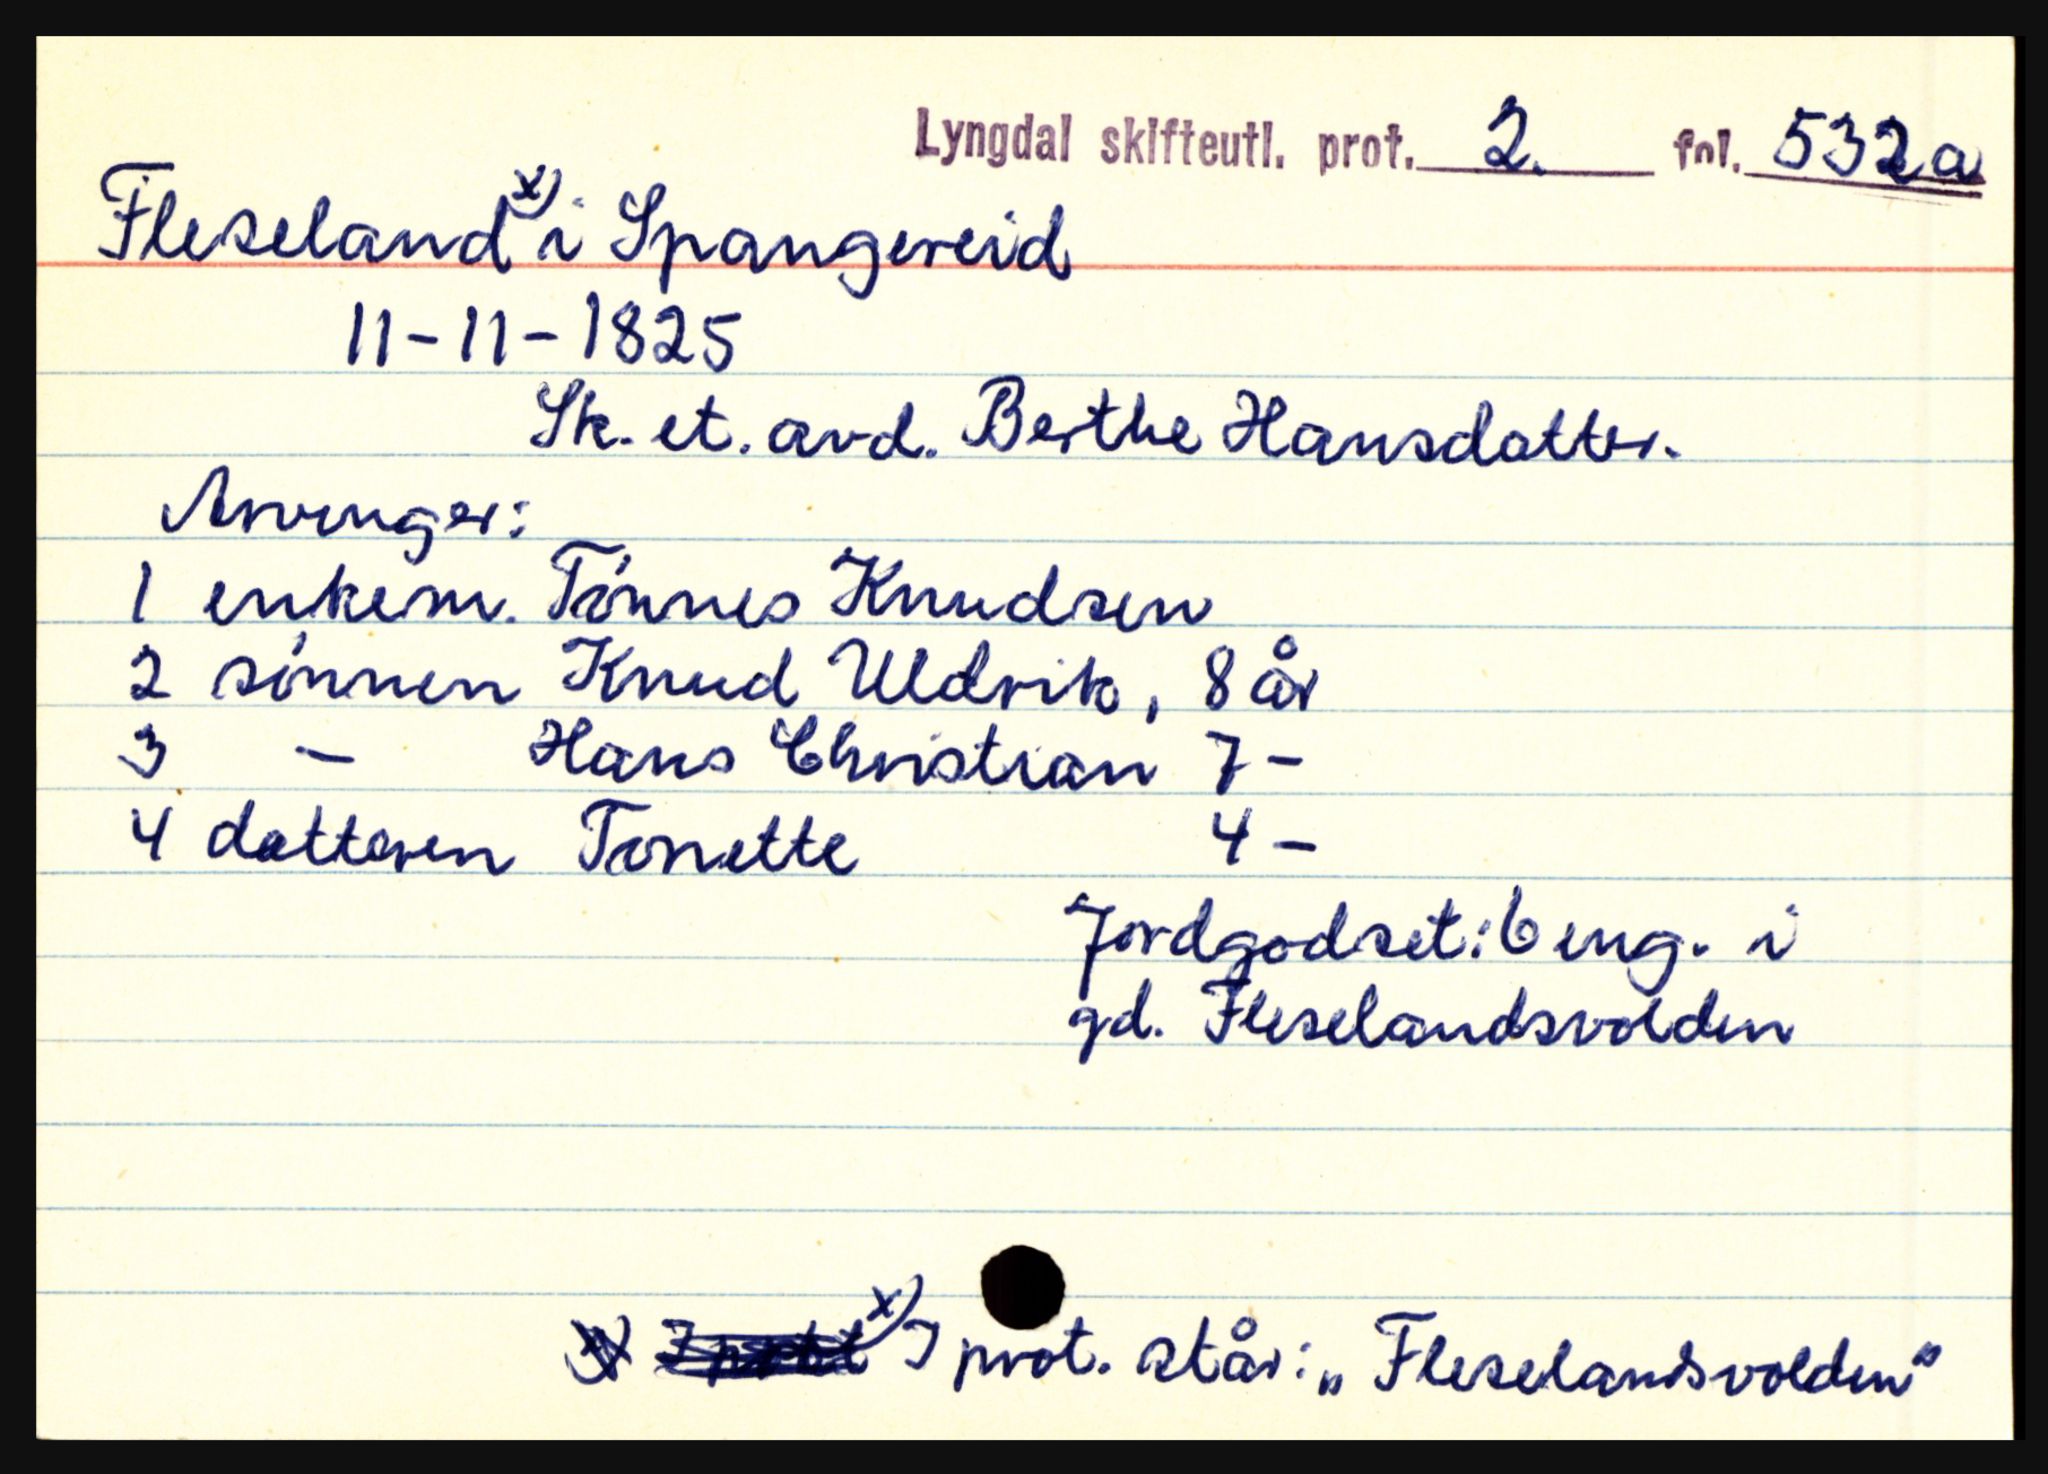 Lyngdal skifteutl. prot. 2. fol. 532a
Fleseland x) i Spangereid
11-11-1825
Sk. et. avd. Berthe Hansdatter.
Arvinger:
1 enkem. Tónnes Knudsen
2 sónnen Knud Uldrik, 8 år
3 - Hans Christian 7 -
4 datteren Tonette 4 -
Jordgodset: 6 eng. i
gd. Fleselandsvolden
x) I prot. står: „Fleselandsvolden"